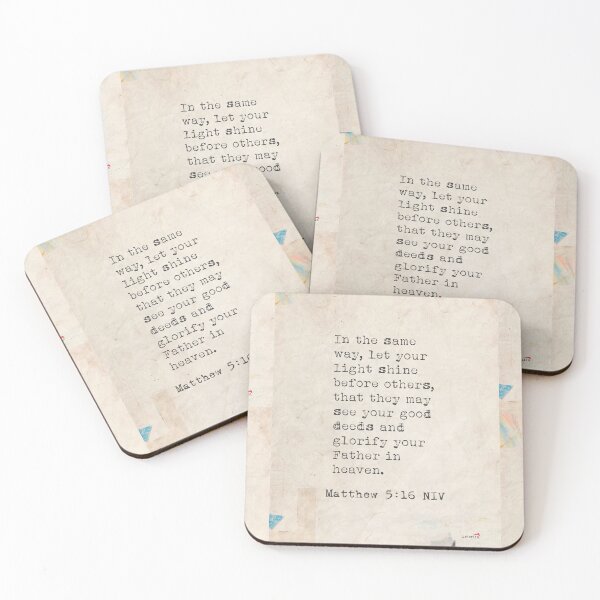 In the same
way, let your
light shine
before others,
that they may
see your good
In the same
way, let your
light shine
before others,
that they may
see your good
deeds and
glorify your
Father in
heaven.
In the same
way, let your
light shine
before others,
that they may
see your good
deeds and
glorify your
Father in
heaven.
Matthew 5:16
In the same
way, let your
light shine
before others,
that they may
see your good
deeds and
glorify your
Father in
heaven.
Matthew 5:16 NIV